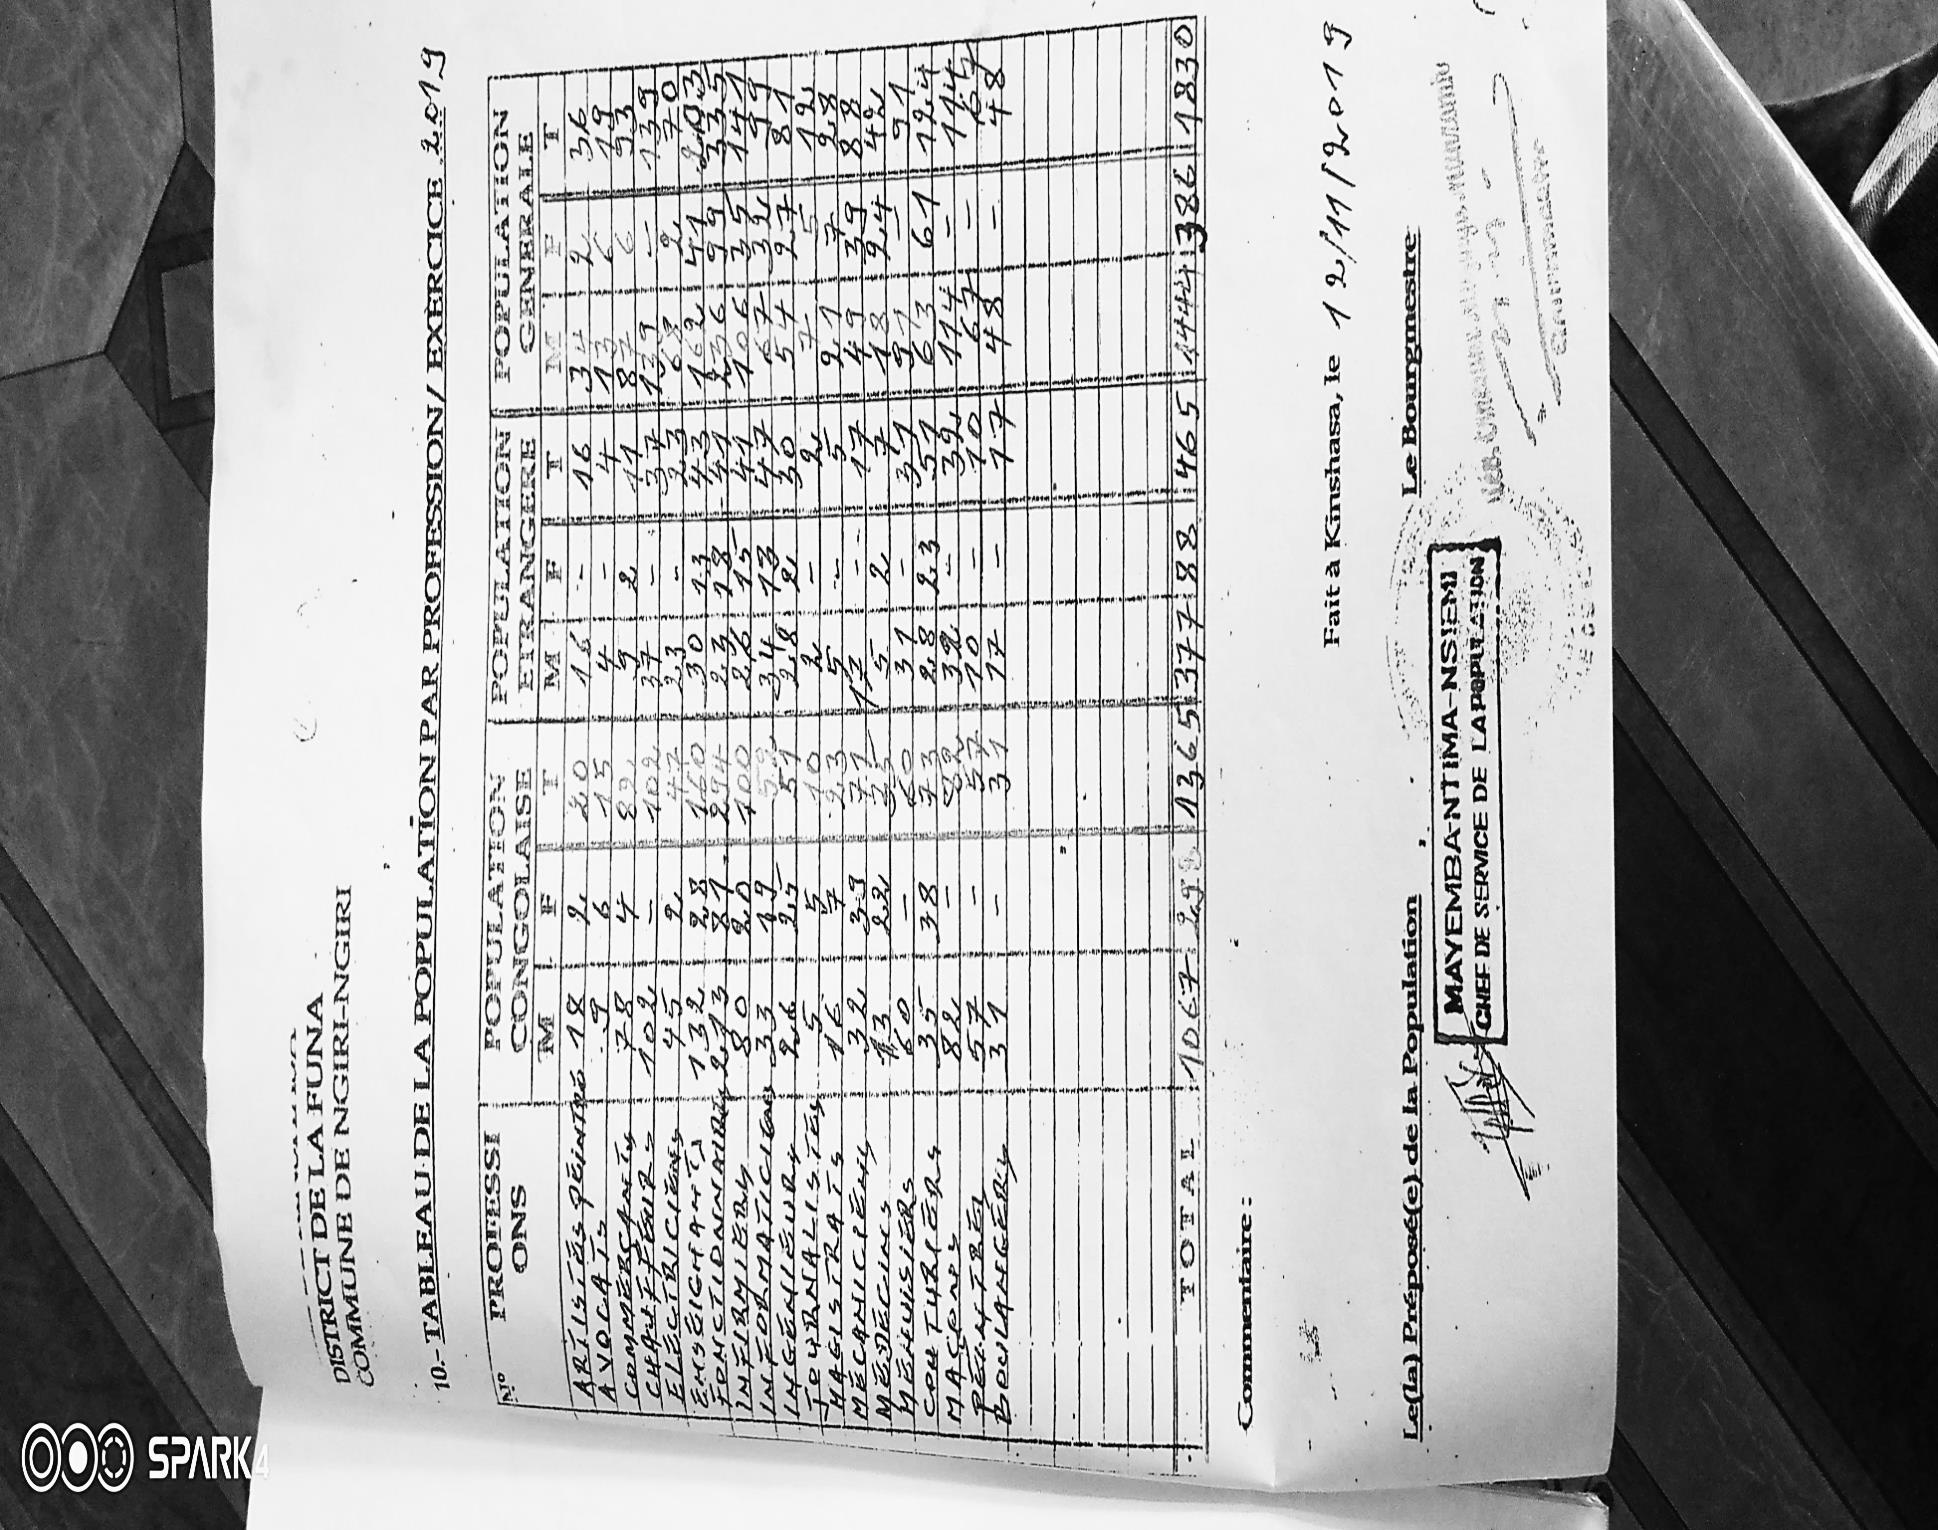 DISTRICT DE LA FUNA
COMMUNE DE NGIRI-NGIRI
10.- TABLEAU DE LA POPULATION PAR PROFESSION/ EXERCICE 2019
N° PROFESSIONS POPULATION CONGOLAISE POPULATION ETRANGERE POPULATION GENERALE
M F T M F T M F T
ARTISTES PEINTRE 18 2 20 16 - 16 34 2 36
AVOCATS 9 6 15 4 - 4 13 6 19
COMMERCANTS 78 4 82 9 2 11 87 6 93
CHAUFFEURS 102 - 102 37 - 37 139 - 139
ELECTRICIENS 45 2 47 23 - 23 68 2 70
ENSEIGNANTS 132 28 160 30 13 43 162 41 203
FONCTIONNAIRES 213 81 294 23 18 41 236 99 335
INFIRMIERS 80 20 100 26 15 41 106 35 141
INFORMATICIENS 33 19 52 34 13 47 67 32 99
INGENIEURS 26 25 51 28 2 30 54 27 81
JOURNALISTES 5 5 10 2 - 2 7 5 12
MAGISTRATS 16 7 23 5 - 5 21 7 28
MECANICIENS 32 39 71 17 - 17 49 39 88
MEDECINS 13 22 35 5 2 7 18 24 42
MENUISIERS 60 - 60 31 - 31 91 - 91
COUTURIERS 35 38 73 28 23 51 63 61 124
MAÇONS 82 - 82 32 - 32 114 - 114
PEINTRES 57 - 57 10 - 10 67 - 67
BOULANGERS 31 - 31 17 - 17 48 - 48
TOTAL 1067 298 1365 377 88 465 1444 386 1830
Commentaire :
Fait à Kinshasa, le 12/11/2019
Le(la) Préposé(e) de la Population Le Bourgmestre
MAYEMBA-NTIMA-NSIEMI
CHEF DE SERVICE DE LA POPULATION
SPARK 4